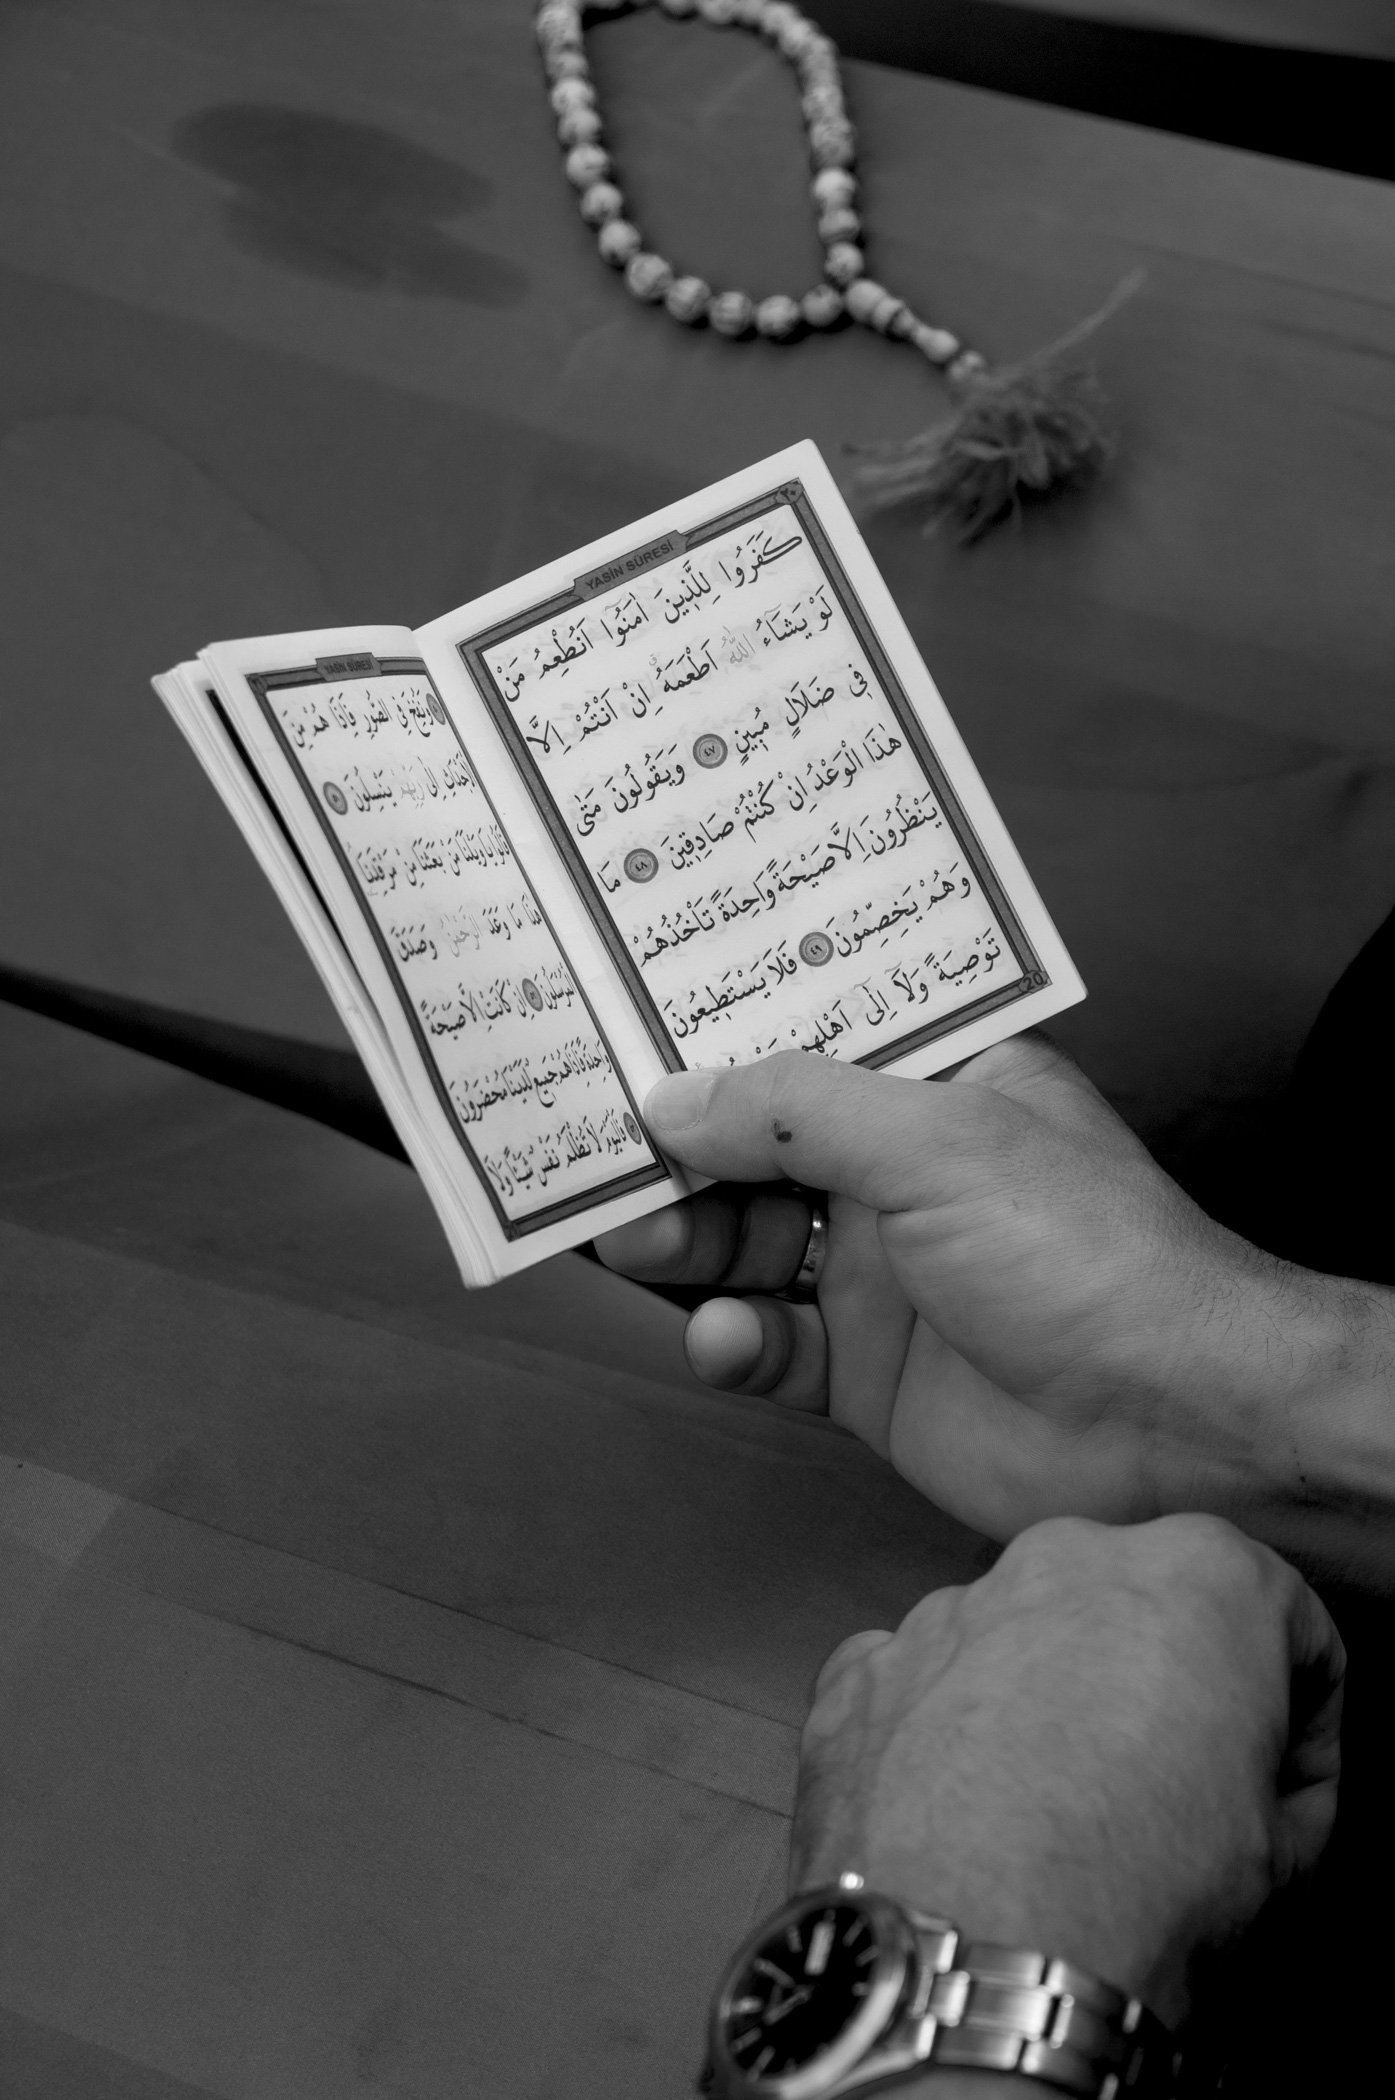 ٢٠
YASİN SÛRESİ
كَفَرُوا لِلَّذ۪ينَ اٰمَنُٓوا اَنُطْعِمُ مَنْ
لَوْ يَشَٓاءُ اللّٰهُ اَطْعَمَهُۗ اِنْ اَنْتُمْ اِلَّا
ف۪ي ضَلَالٍ مُب۪ينٍ ٤٧ وَيَقُولُونَ مَتٰى
هٰذَا الْوَعْدُ اِنْ كُنْتُمْ صَادِق۪ينَ ٤٨ مَا
يَنْظُرُونَ اِلَّا صَيْحَةً وَاحِدَةً تَأْخُذُهُمْ
وَهُمْ يَخِصِّمُونَ ٤٩ فَلَا يَسْتَط۪يعُونَ
تَوْصِيَةً وَلَٓا اِلٰٓى اَهْلِهِمْ
20
YASİN SÛRESİ
وَنُفِخَ فِي الصُّورِ فَاِذَا هُمْ مِنَ
الْاَجْدَاثِ اِلٰى رَبِّهِمْ يَنْسِلُونَ
قَالُوا يَا وَيْلَنَا مَنْ بَعَثَنَا مِنْ مَرْقَدِنَا
هٰذَا مَا وَعَدَ الرَّحْمٰنُ وَصَدَقَ
الْمُرْسَلُونَ اِنْ كَانَتْ اِلَّا صَيْحَةً
وَاحِدَةً فَاِذَا هُمْ جَم۪يعٌ لَدَيْنَا مُحْضَرُونَ
فَالْيَوْمَ لَا تُظْلَمُ نَفْسٌ شَيْـًٔا وَلَا